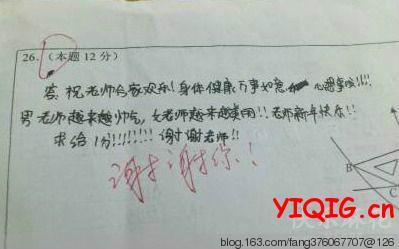 26.(本题12分)
答:祝老师合家欢乐!身体健康万事如意 心想事成!!!!
男老师越来越帅气,女老师越来越美丽!!老师新年快乐!!
求给1分!!!!!!!!谢谢老师!!
谢谢你!!
B
C
YIQIG.cn
blog.163.com/fang376067707@126